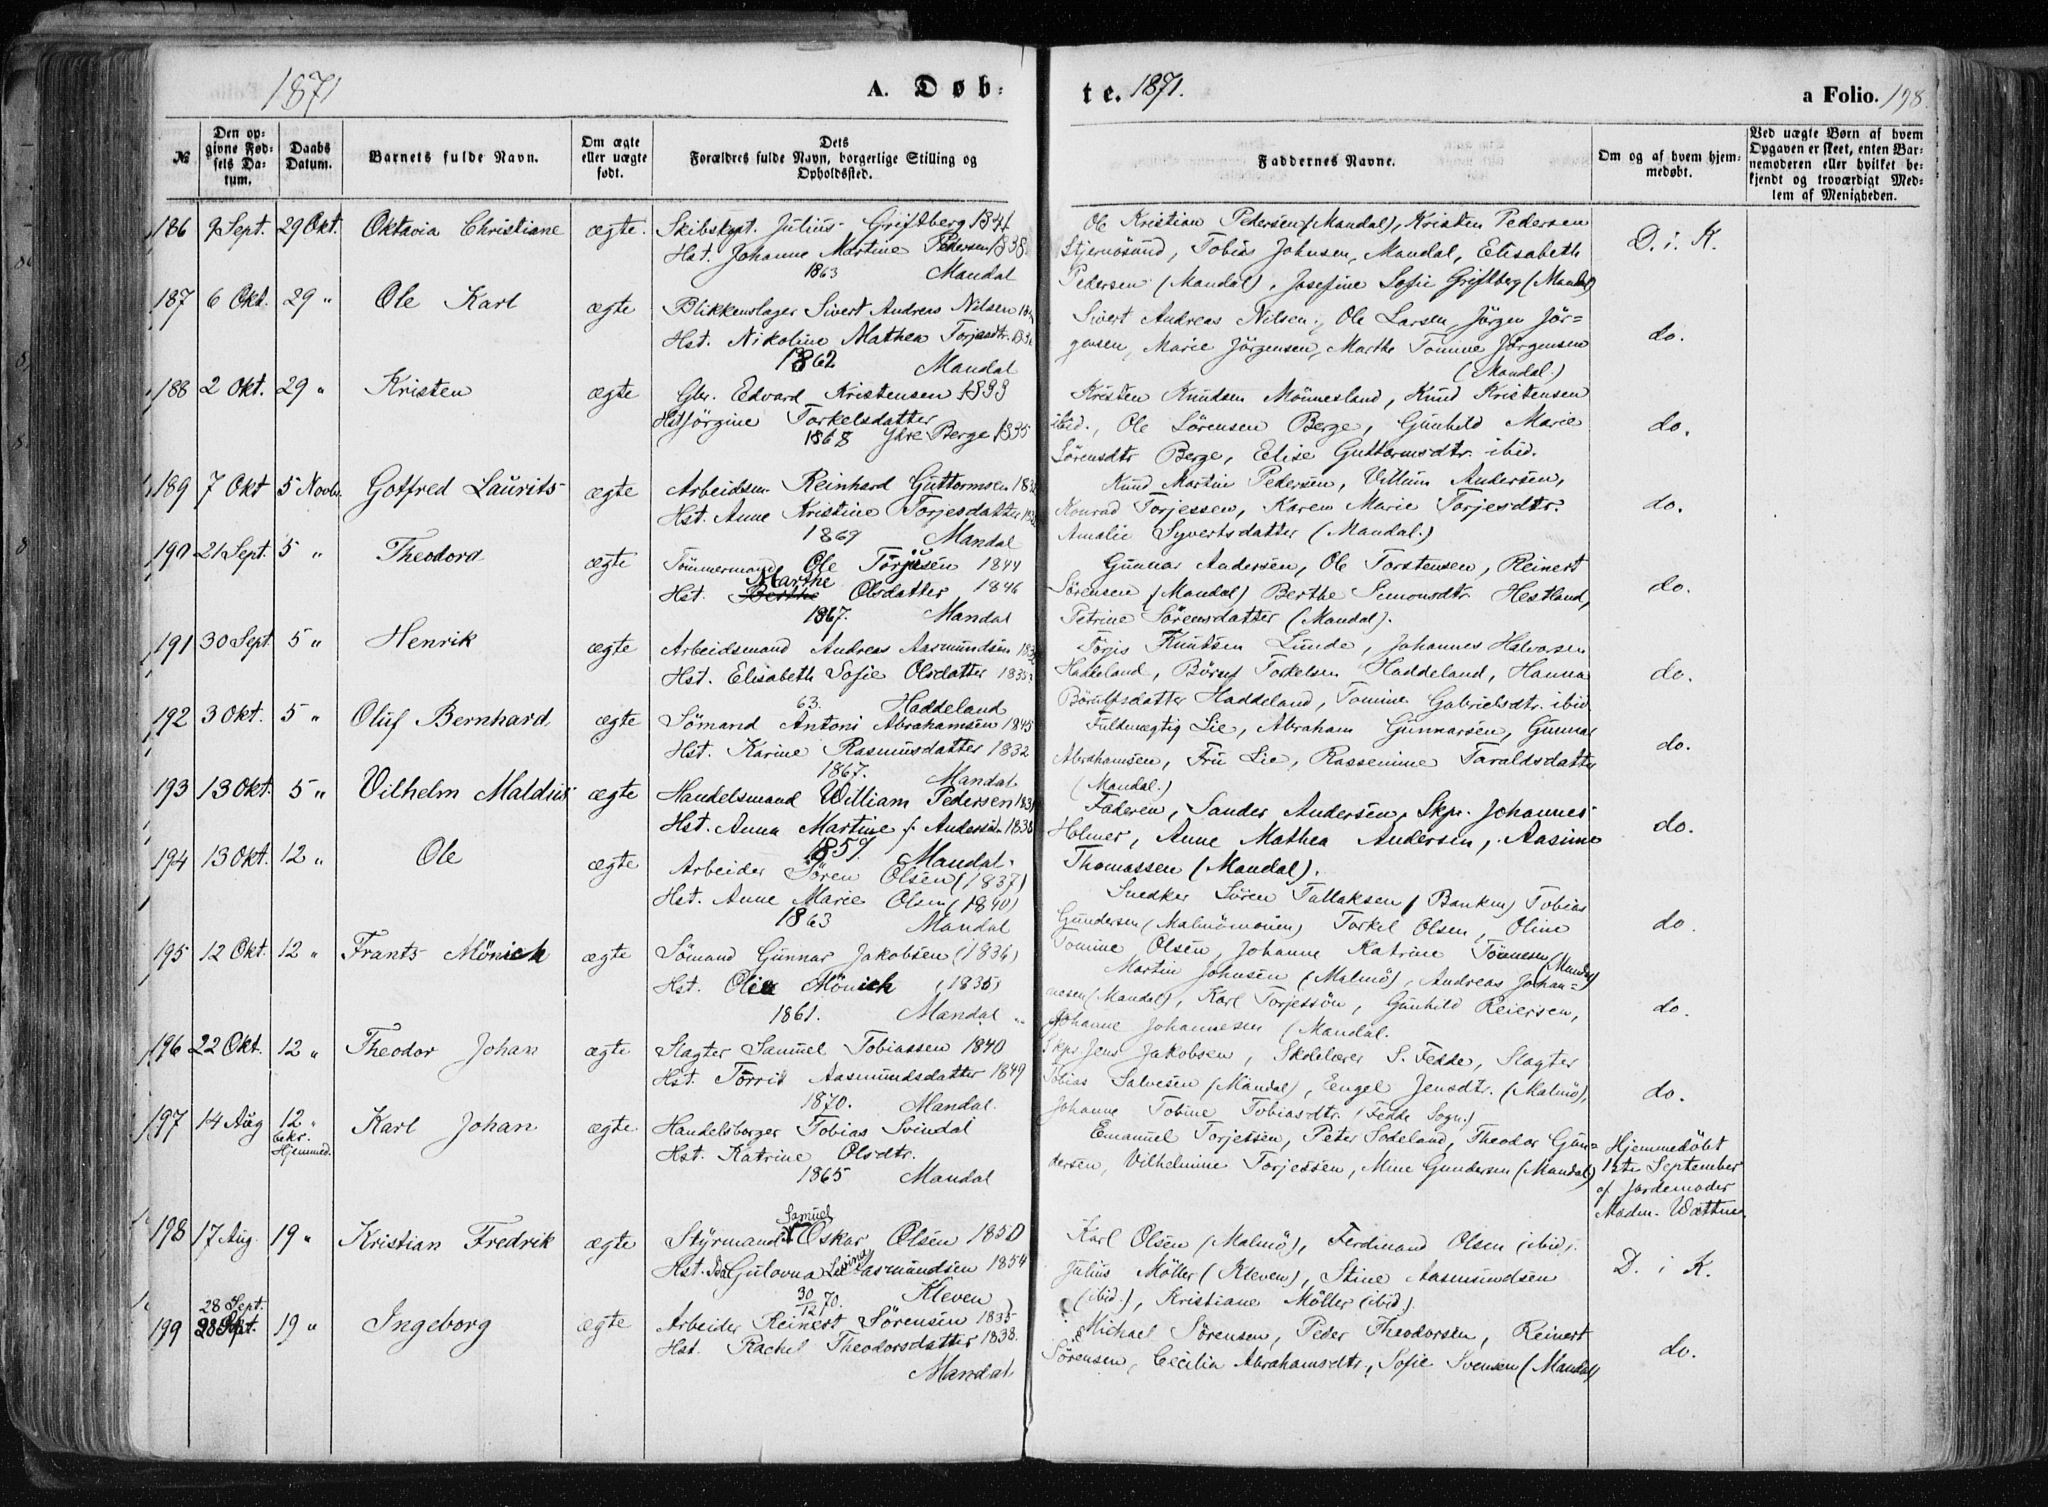 1871
A. Døb-
te. 1871.
a Folio. 198.
№
Den opgivne Fødsels Datum.
Daabs Datum.
Barnets fulde Navn.
Om ægte eller uægte født.
Dets
Forældres fulde Navn, borgerlige Stilling og
Opholdssted.
Faddernes Navne.
Om og af hvem hjemmedøbt.
Ved uægte Børn af hvem
Opgaven er skeet, enten Barnemoderen eller hvilket bekjendt og troværdigt Medlem af Menigheden.
186 9 Sept. 29 Okt. Oktavia Christiane ægte. Skibskpt. Julius Griftberg 1841
Hst. Johanne Martine Pedersen 1838
1863 Mandal
Ole Kristian Pedersen (Mandal), Kristen Pedersen
Stjernösund, Tobias Johnsen, Mandal, Elisabeth
Pedersen (Mandal), Josefine Sofie Griftberg (Mandal)
D. i. K.
187 6 Okt. 29 " Ole Karl ægte Blikkenslager Sivert Andreas Nilsen
Hst. Nikoline Mathea Torjesdtr.
1862 Mandal
Sivert Andreas Nilsen, Ole Larsen, Jörgen Jör-
gensen, Marie Jörgensen, Marthe Tomine Jörgensen
(Mandal.)
do.
188 2 Okt. 29 " Kristen ægte Gbr. Edvard Kristensen 1833
Hst Jörgine Torkelsdatter
1868 Ydre Berge 1835
Kristen Knudsen Mönnesland, Knud Kristensen
ibid., Ole Sörensen Berge, Gunhild Marie
Sörensdtr Berge, Elise Guttormsdtr. ibid.
do.
189 7 Okt 5 Novbr. Gotfred Laurits ægte Arbeidsm Reinhard Guttormsen
Hst. Anne Kristine Torjesdatter
1869 Mandal
Knud Martin Pedersen, Villum Andersen,
Konrad Torjessen, Karen Marie Torjesdtr.
Amalie Syvertsdatter (Mandal.)
do.
190 21 Sept. 5 " Theodora ægte Tömmermand Ole Torjusen 1844
Marthe
Hst. Berthe Olsdatter 1846
1867. Mandal
Gunnar Andersen, Ole Torstensen, Reinert
Sörensen (Mandal) Berthe Simonsdtr. Hestland,
Petrine Sörensdatter (Mandal).
do.
191 30 Sept. 5 " Henrik ægte Arbeidsmand Andreas Aasmundsen
Hst. Elisabeth Sofie Olsdatter 1835
63. Haddeland
Torjis Knutsen Lunde, Johannes Halvorsen
Haddeland, Börulf Torkelsen Haddeland, Hanna
Börulfsdatter Haddeland, Tomine Gabrielsdtr. ibid
do.
192 3 Okt. 5 " Oluf Bernhard ægte Sömand Antoni Abrahamsen 1845
Hst. Karine Rasmusdatter 1832
1867. Mandal
Fuldmægtig Lie, Abraham Gunnarsen, Gunnar
Abrahamsen, Fru Lie, Rassemine Taraldsdatter
(Mandal.)
do.
193 13 Okt. 5 " Vilhelm Maldius ægte Handelsmand William Pedersen
Hst. Anna Martine f. Andersen 1838
1859. Mandal.
Faderen, Sander Andersen, Skpr. Johannes
Holmer, Anne Mathea Andersen, Aasine
Thomassen (Mandal).
do.
194 13 Okt. 12 " Ole ægte Arbeider Sören Olsen (1837)
Hst. Anne Marie Olsen (1840)
1863 Mandal
Snedker Sören Tallaksen (Banken) Tobias
Gundersen (Malmömonen) Torkel Olsen, Oline
Tomine Olsen Johanne Katrine Tönnesen (Mandal)
do.
195 12 Okt. 12 " Frants Mönich ægte Sömand Gunnar Jakobsen (1836)
Hst. Olia Mönich (1835)
1861. Mandal
Martin Johnsen (Malmö), Andreas Johan-
nesen (Mandal), Karl Torjessön, Gunhild Reiersen,
Johanne Johannesen (Mandal.
do.
196 22 Okt. 12 " Theodor Johan ægte Slagter Samuel Tobiassen 1840
Hst. Torrid Aasmundsdatter 1849
1870. Mandal.
Skpr Jens Jakobsen, Skolelærer S. Fedde, Slagter
Tobias Salvesen (Mandal), Engel Jensdtr. (Malmö),
Johanne Tobine Tobiasdtr. (Fedde Sogn.)
do.
197 14 Aug 12 " bekr. Hjemmed. Karl Johan ægte Handelsborger Tobias Svindal
Hst. Katrine Olsdtr.
1865 Mandal
Emanuel Torjessen, Peter Sodeland, Theodor Gun-
dersen, Vilhelmine Torjessen, Mine Gundersen (Mandal)
Hjemmedöbt
1ste September
af Jordemoder
Madm. Wathne.
198 17 Aug. 19 " Kristian Fredrik ægte Styrmand Samuel Oskar Olsen 1850
Hst. Gulovna Aasmundsen 1854
30/12 70. Kleven
Karl Olsen (Malmö), Ferdinand Olsen (ibid).
Julius Möller (Kleven), Stine Aasmundsen
(ibid.), Kristiane Möller (ibid.)
D. i K.
28 Sept.
199 28 Spt. 19 " Ingeborg ægte Arbeider Reinert Sörensen 1835
Hst. Rachel Theodorsdatter 1838.
Mandal.
Michael Sörensen, Peder Theodorsen, Reinert
Sörensen, Cecilia Abrahamsdtr, Sofie Svensen (Mandal)
do.